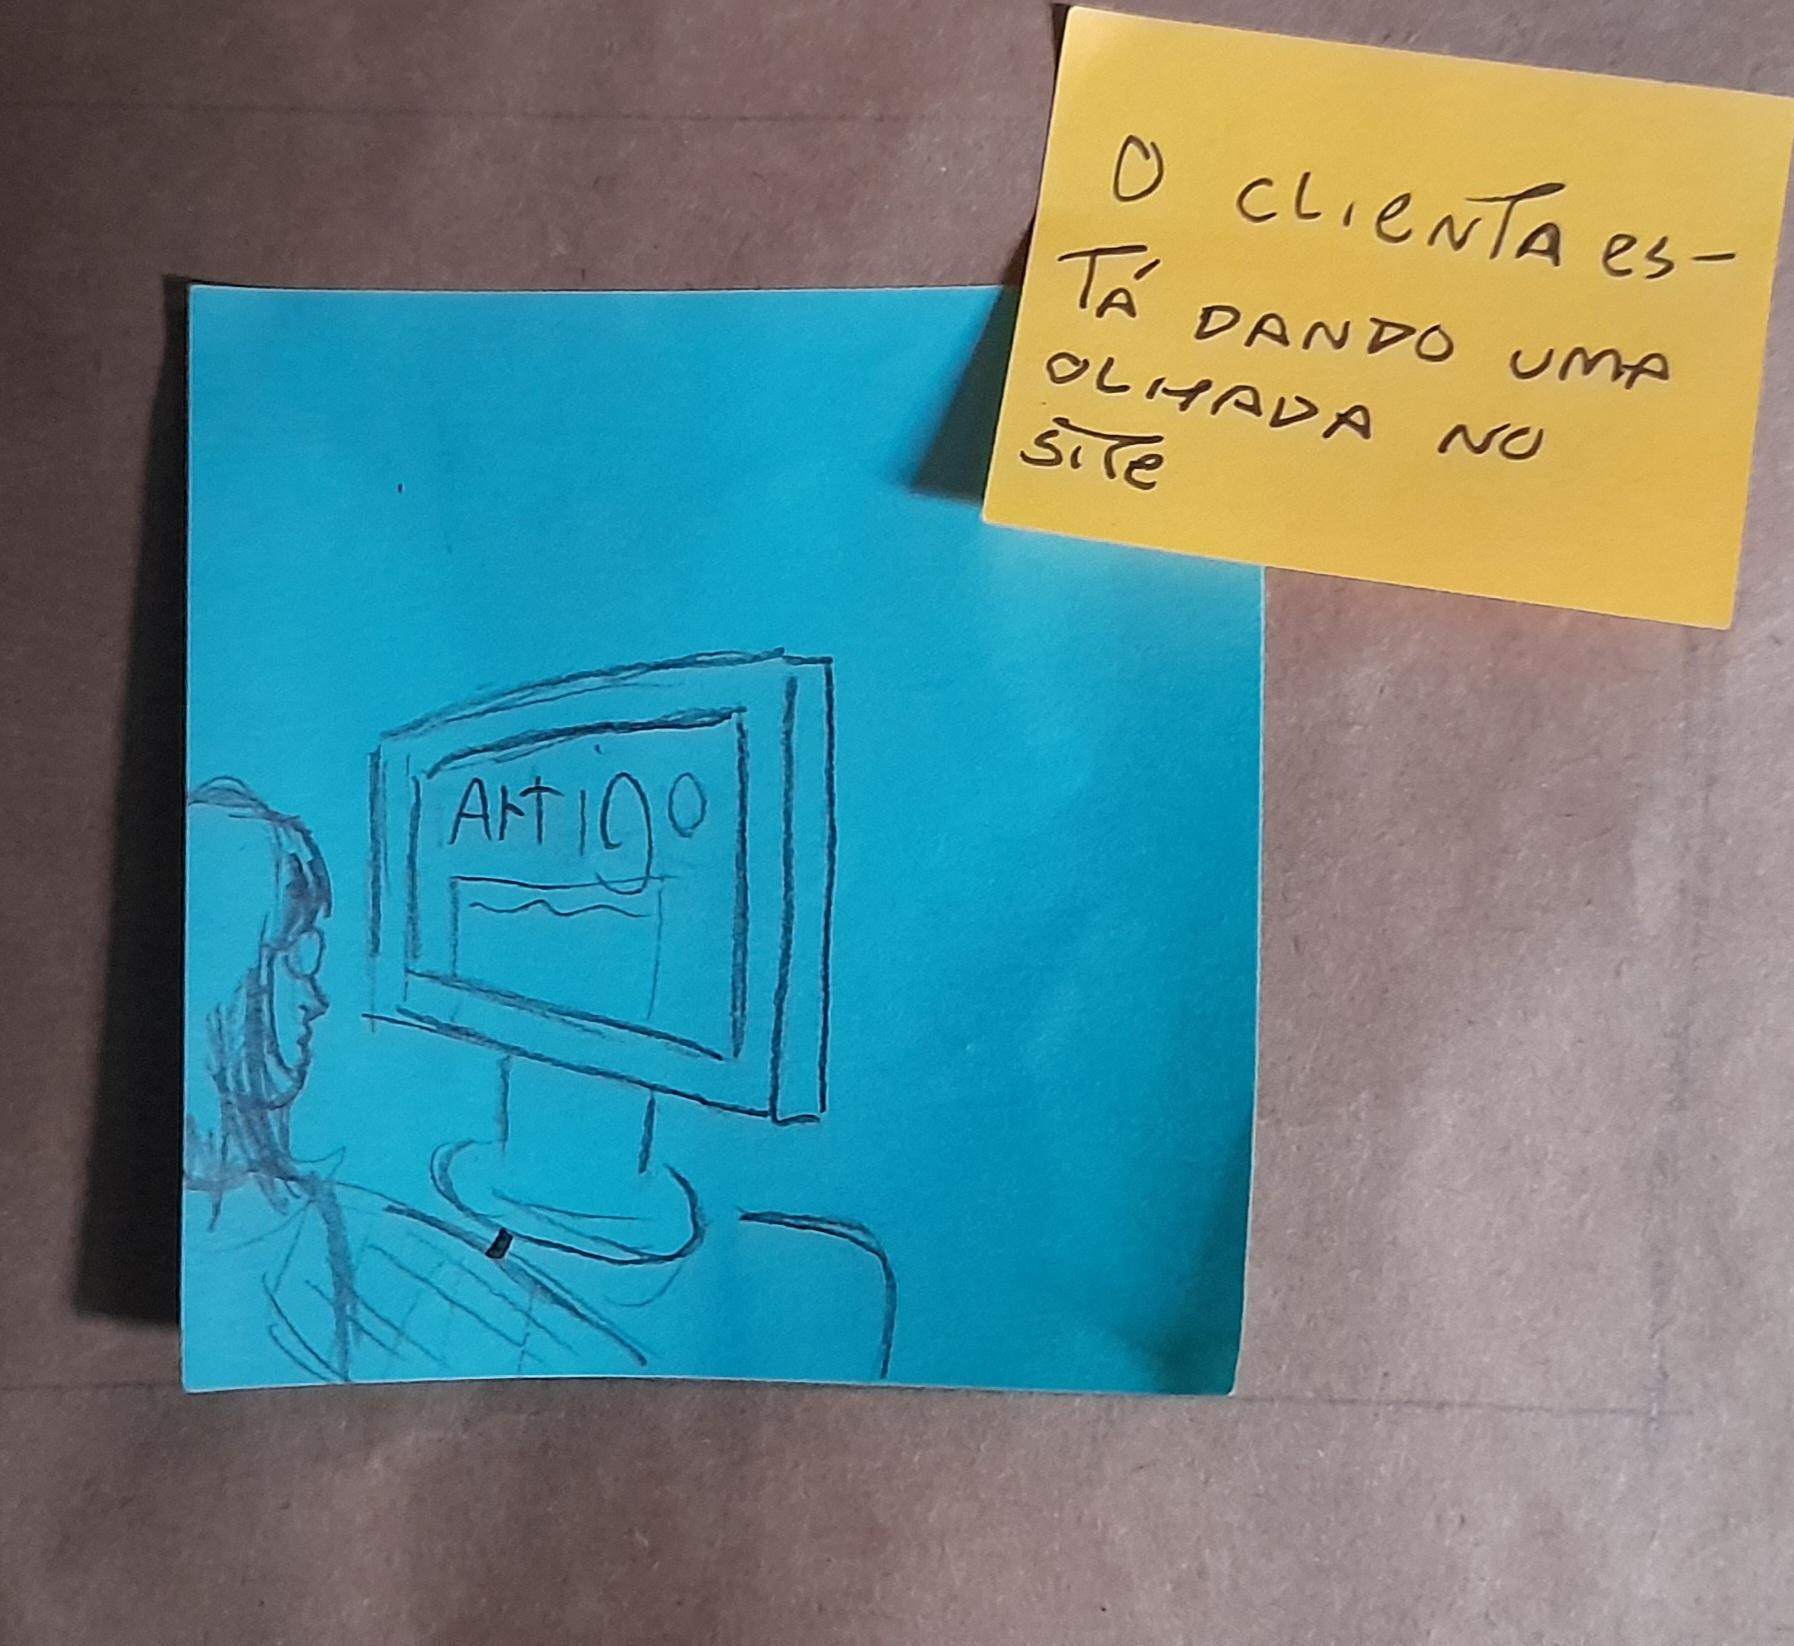 O CLIENTA ES-
TÁ DANDO UMA
OLHADA NO
SITE
ARTIGO